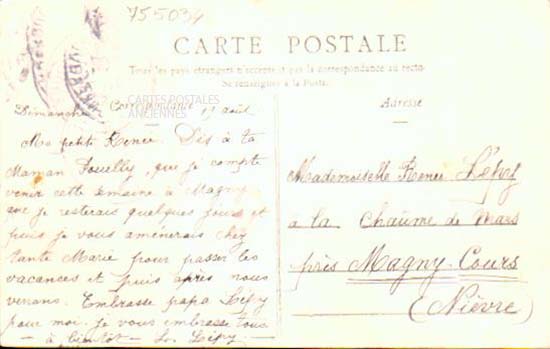 755034
CARTE POSTALE
Tous les pays étrangers n'acceptent pas la correspondance au recto.
Se renseigner à la Poste.
Correspondance
Adresse
CARTES POSTALES
ANCIENNES
Dimanche 17 août
Ma petite Renée. Dis à ta
Maman que je compte
venir cette semaine à Magny
que je resterais quelques jours et
puis je vous amènerais chez
tante Marie pour passer les
vacances et puis après nous
verons. Embrasse papa Lépy
pour moi. je vous embrasse tous
— à bientôt — Lépy
Mademoiselle Renée Lépy
à la Chaume de Mars
près Magny-Cours
(Nièvre)